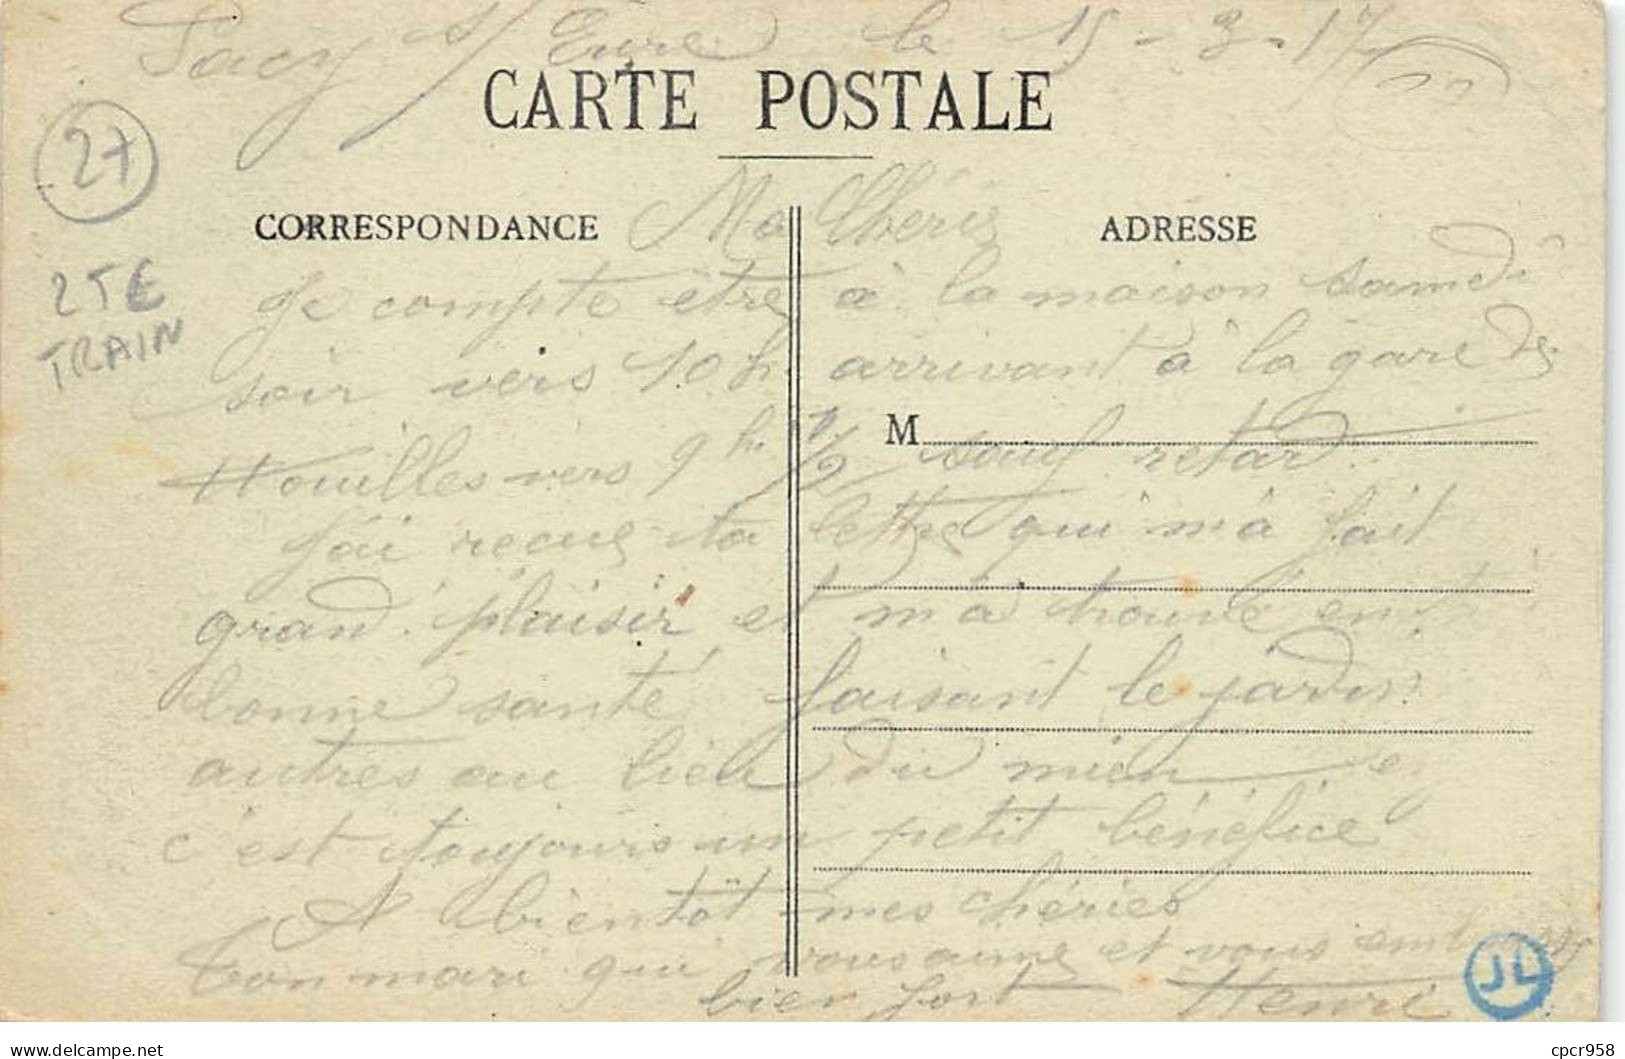 Pacy s/ Eure le 15-3-17
CARTE POSTALE
27
Ma Chérie
CORRESPONDANCE
ADRESSE
2TE
TRAIN
Je compte être à la maison samedi
soir vers 10 h. arrivant à la gare de
Houilles vers 9 h 1/2 sauf retard
M
J'ai recue ta lettre qui m'a fait
grand plaisir et m'a trouvé en
bonne santé faisant le jardin
autres au lieu du mien
c'est toujours un petit bénéfice
A bientôt mes chéries
Ton mari qui vous aime et vous embrasse
bien fort Henri
JL
delcampe.net
cpcr958